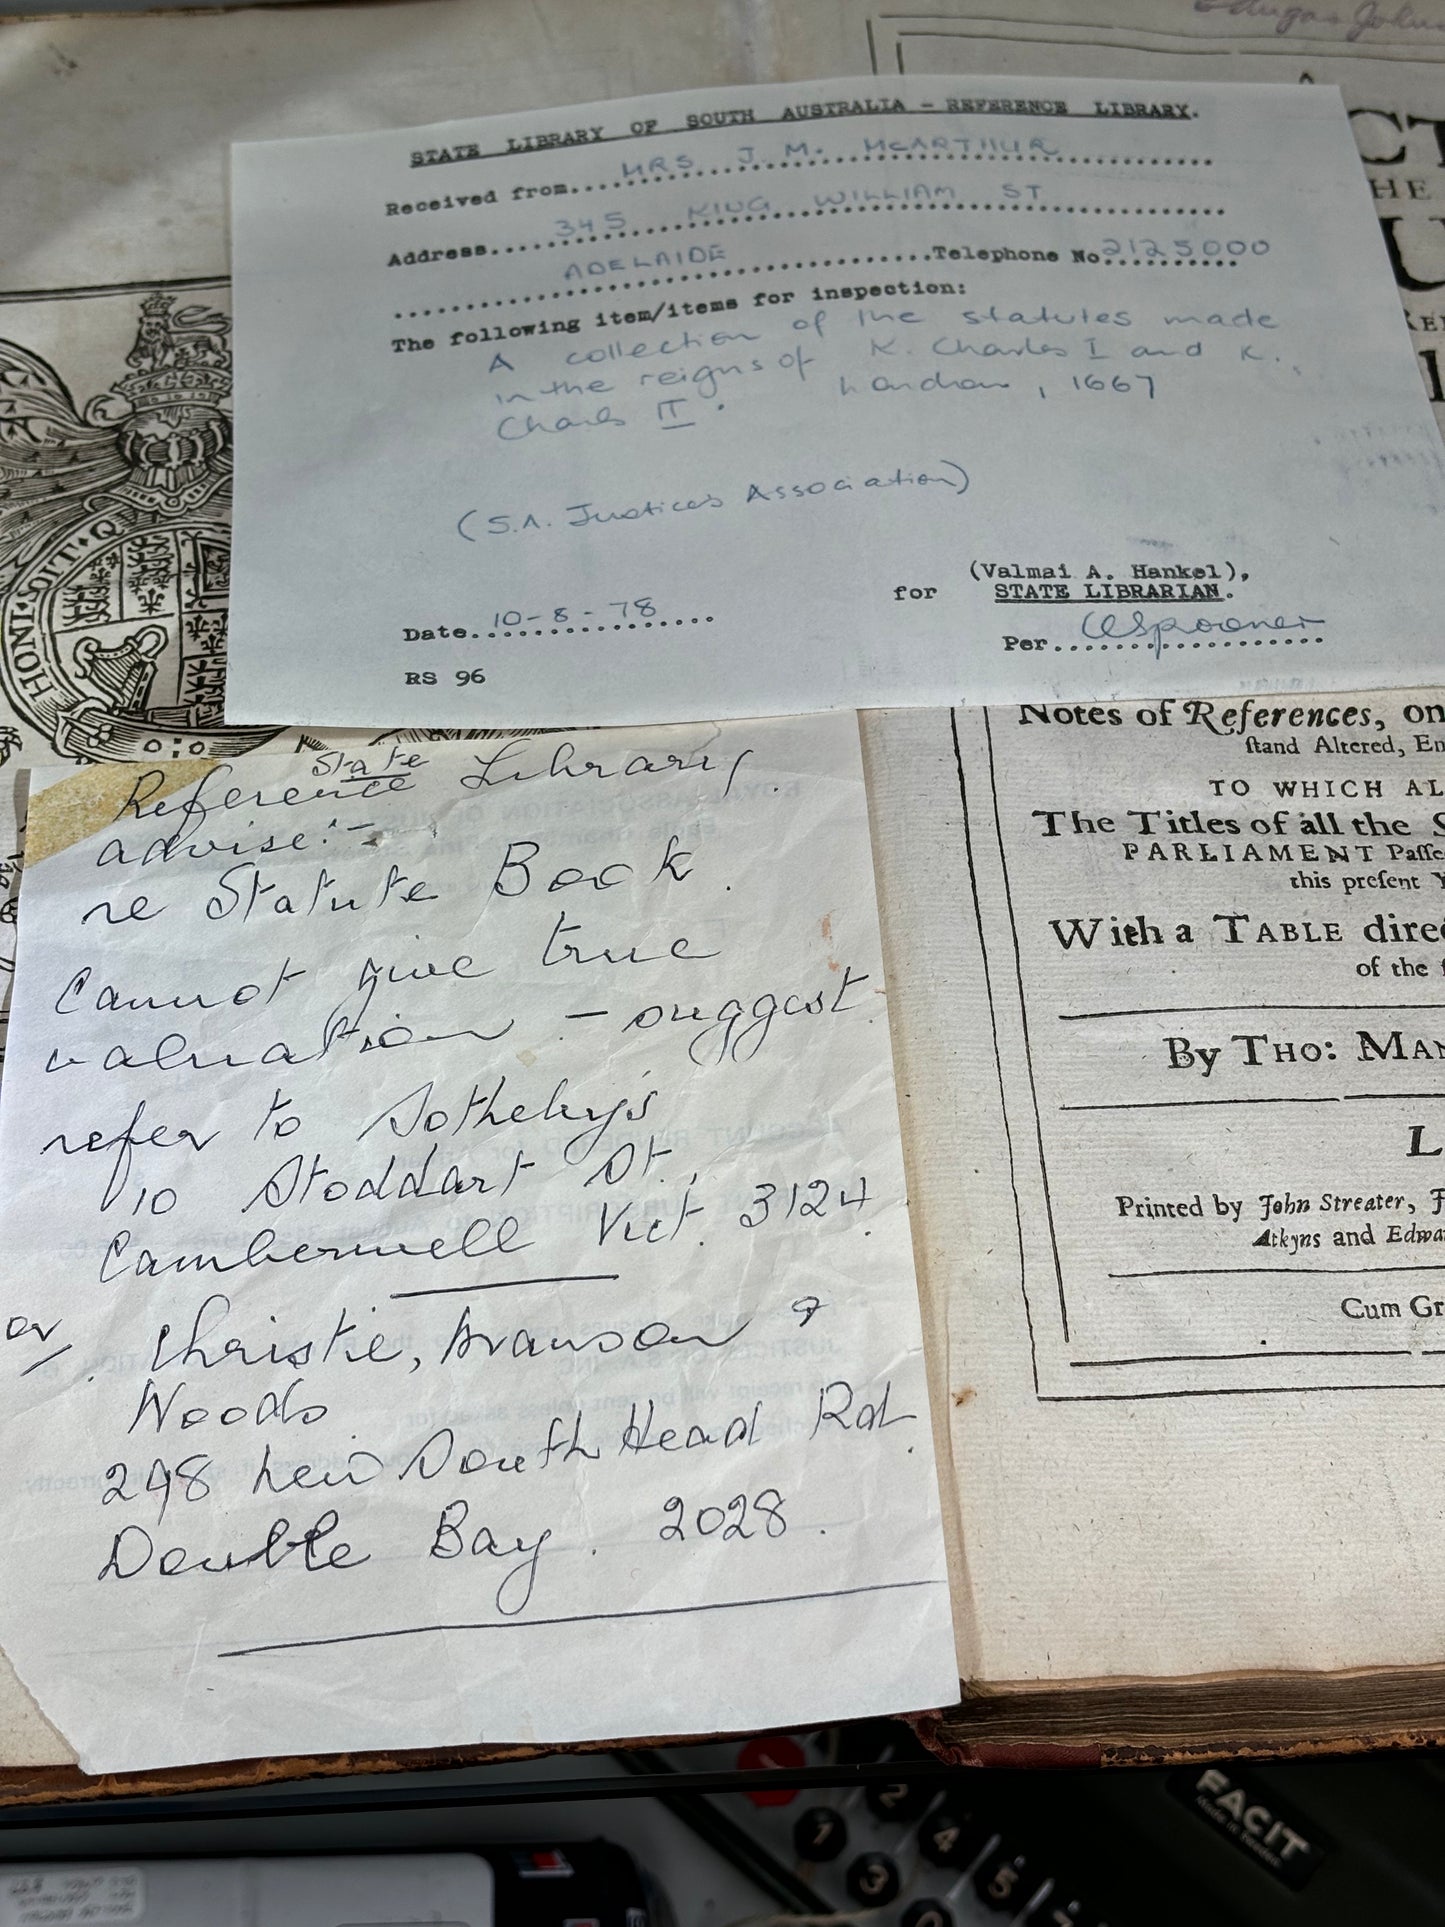 STATE LIBRARY OF SOUTH AUSTRALIA - REFERENCE LIBRARY.
Received from MRS J. M. McARTHUR
Address 345 KING WILLIAM ST
ADELAIDE Telephone No 2125000
The following item/items for inspection:
A collection of the statutes made
in the reigns of K. Charles I and K.
Charles II. London, 1667
(S.A. Justices Association)
(Valmai A. Hankel),
for STATE LIBRARIAN.
Date 10-8-78
Per CSpooner
RS 96
HONI·SOIT·Q
CT
HE
U
Reference State Library
advise:-
re Statute Book.
Cannot give true
valuation - suggest
refer to Sotheby's
10 Stoddart St.,
Camberwell Vict. 3124.
or
Christie, Manson &
Woods
298 New South Head Rd.
Double Bay. 2028.
Notes of References, on
stand Altered, En
TO WHICH AL
The Titles of all the S
PARLIAMENT Passe
this present Y
With a TABLE dire
of the f
By THO: MAN
L
Printed by John Streater, J
Atkyns and Edwa
Cum Gr
FACIT
Made in Sweden
1
2
3
4
5